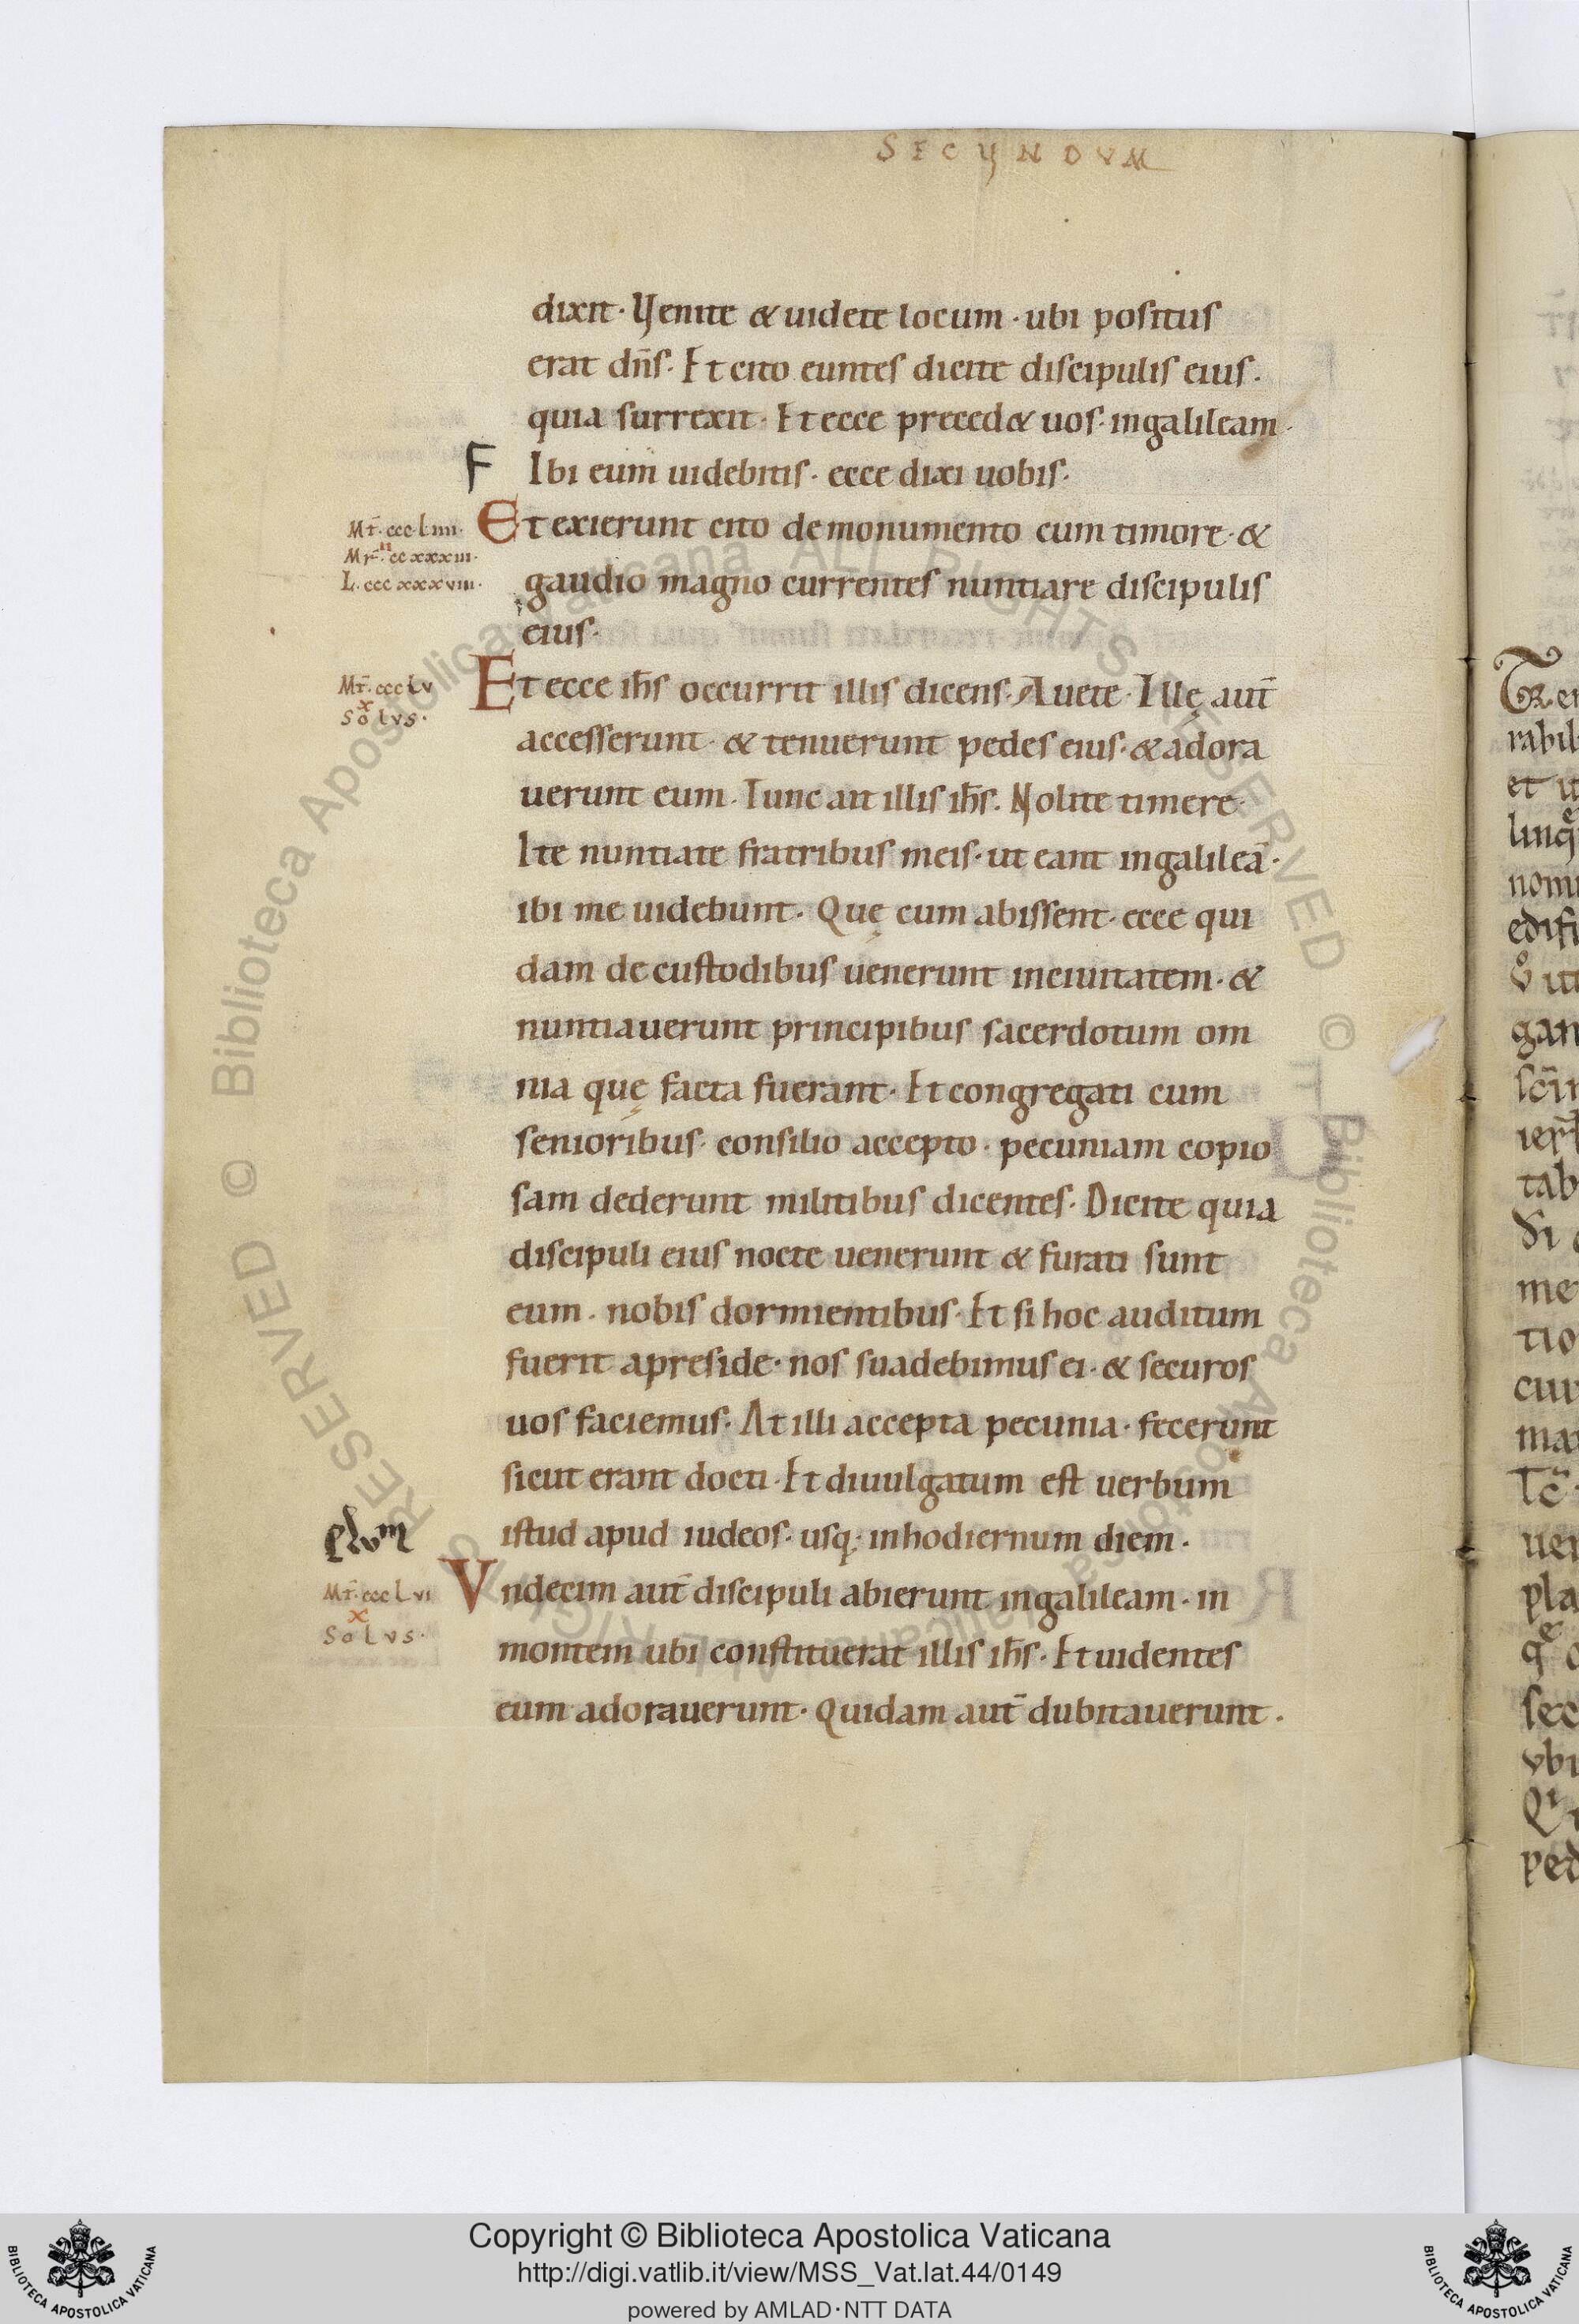 SECUNDVM
dixit· Venite & uidete locum · ubi positus
erat dn̄s. Et cito euntes dicite discipulis eius.
quia surrexit. Et ecce preced& uos· in galileam.
F
Ibi eum uidebitis. ecce dixi uobis.
Mt̄. ccc. Liiii.
Mr̄. ccxxxiii.
II
L. cccxxxxviii.
Et exierunt cito de monumento cum timore· &
gaudio magno currentes nuntiare discipulis
eius.
Mt̄. cccLv
x
SoLvs.
Et ecce ih̄s occurrit illis dicens. Auete. Illę aut̄
accesserunt· & tenuerunt pedes eius· & adora
uerunt eum. Tunc ait illis ih̄s. Nolite timere.
Ite nuntiate fratribus meis· ut eant in galileā·
ibi me uidebunt. Quę cum abissent· ecce qui
dam de custodibus uenerunt in ciuitatem· &
nuntiauerunt principibus sacerdotum om
nia quę facta fuerant. Et congregati cum
senioribus· consilio accepto· pecuniam copio
sam dederunt militibus dicentes. Dicite quia
discipuli eius nocte uenerunt & furati sunt
eum· nobis dormientibus. Et si hoc auditum
fuerit a preside· nos suadebimus ei· & securos
uos faciemus. At illi accepta pecunia· fecerunt
sicut erant docti. Et diuulgatum est uerbum
istud apud iudeos· usq; in hodiernum diem.
Mt̄. cccLvi
x
SoLvs.
Vndecim aut̄ discipuli abierunt in galileam· in
montem ubi constituerat illis ih̄s. Et uidentes
eum adorauerunt. Quidam aut̄ dubitauerunt.
Copyright © Biblioteca Apostolica Vaticana
http://digi.vatlib.it/view/MSS_Vat.lat.44/0149
powered by AMLAD·NTT DATA
BIBLIOTECA APOSTOLICA VATICANA
BIBLIOTECA APOSTOLICA VATICANA